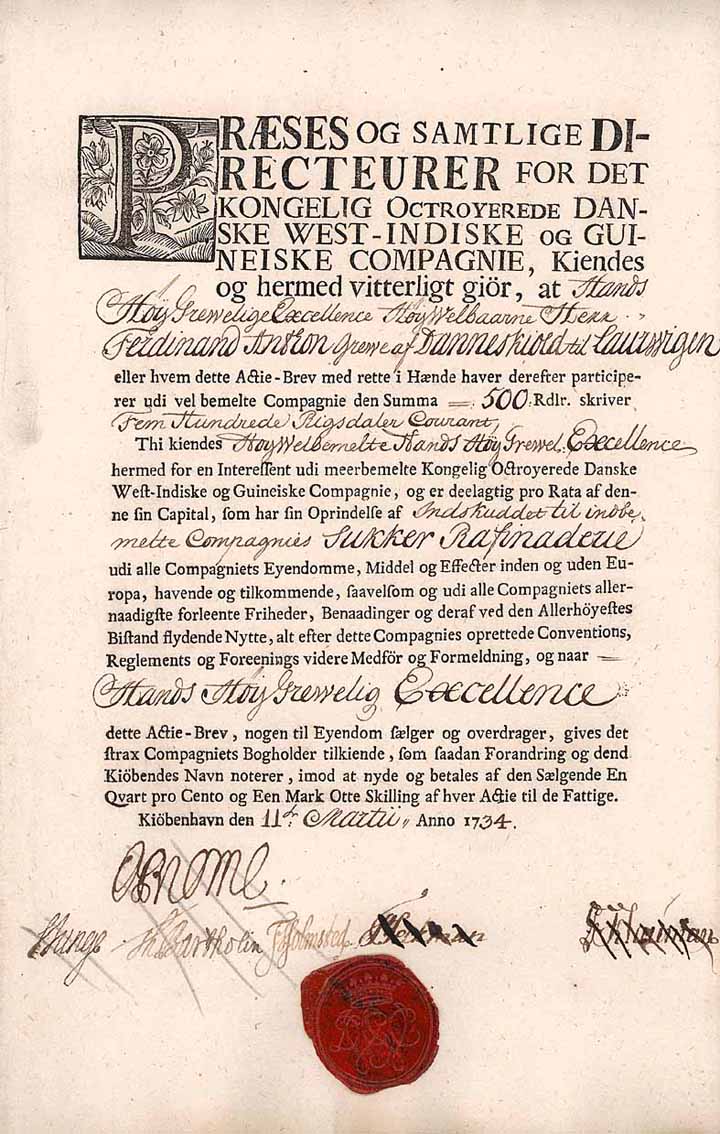 PRÆSES OG SAMTLIGE DI-
RECTEURER FOR DET
KONGELIG OCTROYEREDE DAN-
SKE WEST-INDISKE OG GUI-
NEISKE COMPAGNIE, Kiendes
og hermed vitterligt giör, at Hands
Høy Grewelige Excellence Høy Welbaarne Herr
Ferdinand Anthon Grewe af Danneskiold til Laurwigen
eller hvem dette Actie-Brev med rette i Hænde haver derefter participe-
rer udi vel bemelte Compagnie den Summa 500 Rdlr. skriver
Fem Hundrede Rigsdaler Courant,
Thi kiendes Høy Welbemelte Hands Høy Grewel. Excellence
hermed for en Interessent udi meerbemelte Kongelig Octroyerede Danske
West-Indiske og Guineiske Compagnie, og er deelagtig pro Rata af den-
ne sin Capital, som har sin Oprindelse af Indskuddet til indbe,
melte Compagnies Sukker Rafinaderie
udi alle Compagniets Eyendomme, Middel og Effecter inden og uden Eu-
ropa, havende og tilkommende, saavelsom og udi alle Compagniets aller-
naadigste forleente Friheder, Benaadinger og deraf ved den Allerhöyestes
Bistand flydende Nytte, alt efter dette Compagnies oprettede Conventions,
Reglements og Foreenings videre Medför og Formeldning, og naar
Hands Høy Grewelig Excellence
dette Actie-Brev, nogen til Eyendom sælger og overdrager, gives det
strax Compagniets Bogholder tilkiende, som saadan Forandring og dend
Kiöbendes Navn noterer, imod at nyde og betales af den Sælgende En
Qvart pro Cento og Een Mark Otte Skilling af hver Actie til de Fattige.
Kiöbenhavn den 11te Martii, Anno 1734.
Bartholin Holmsted